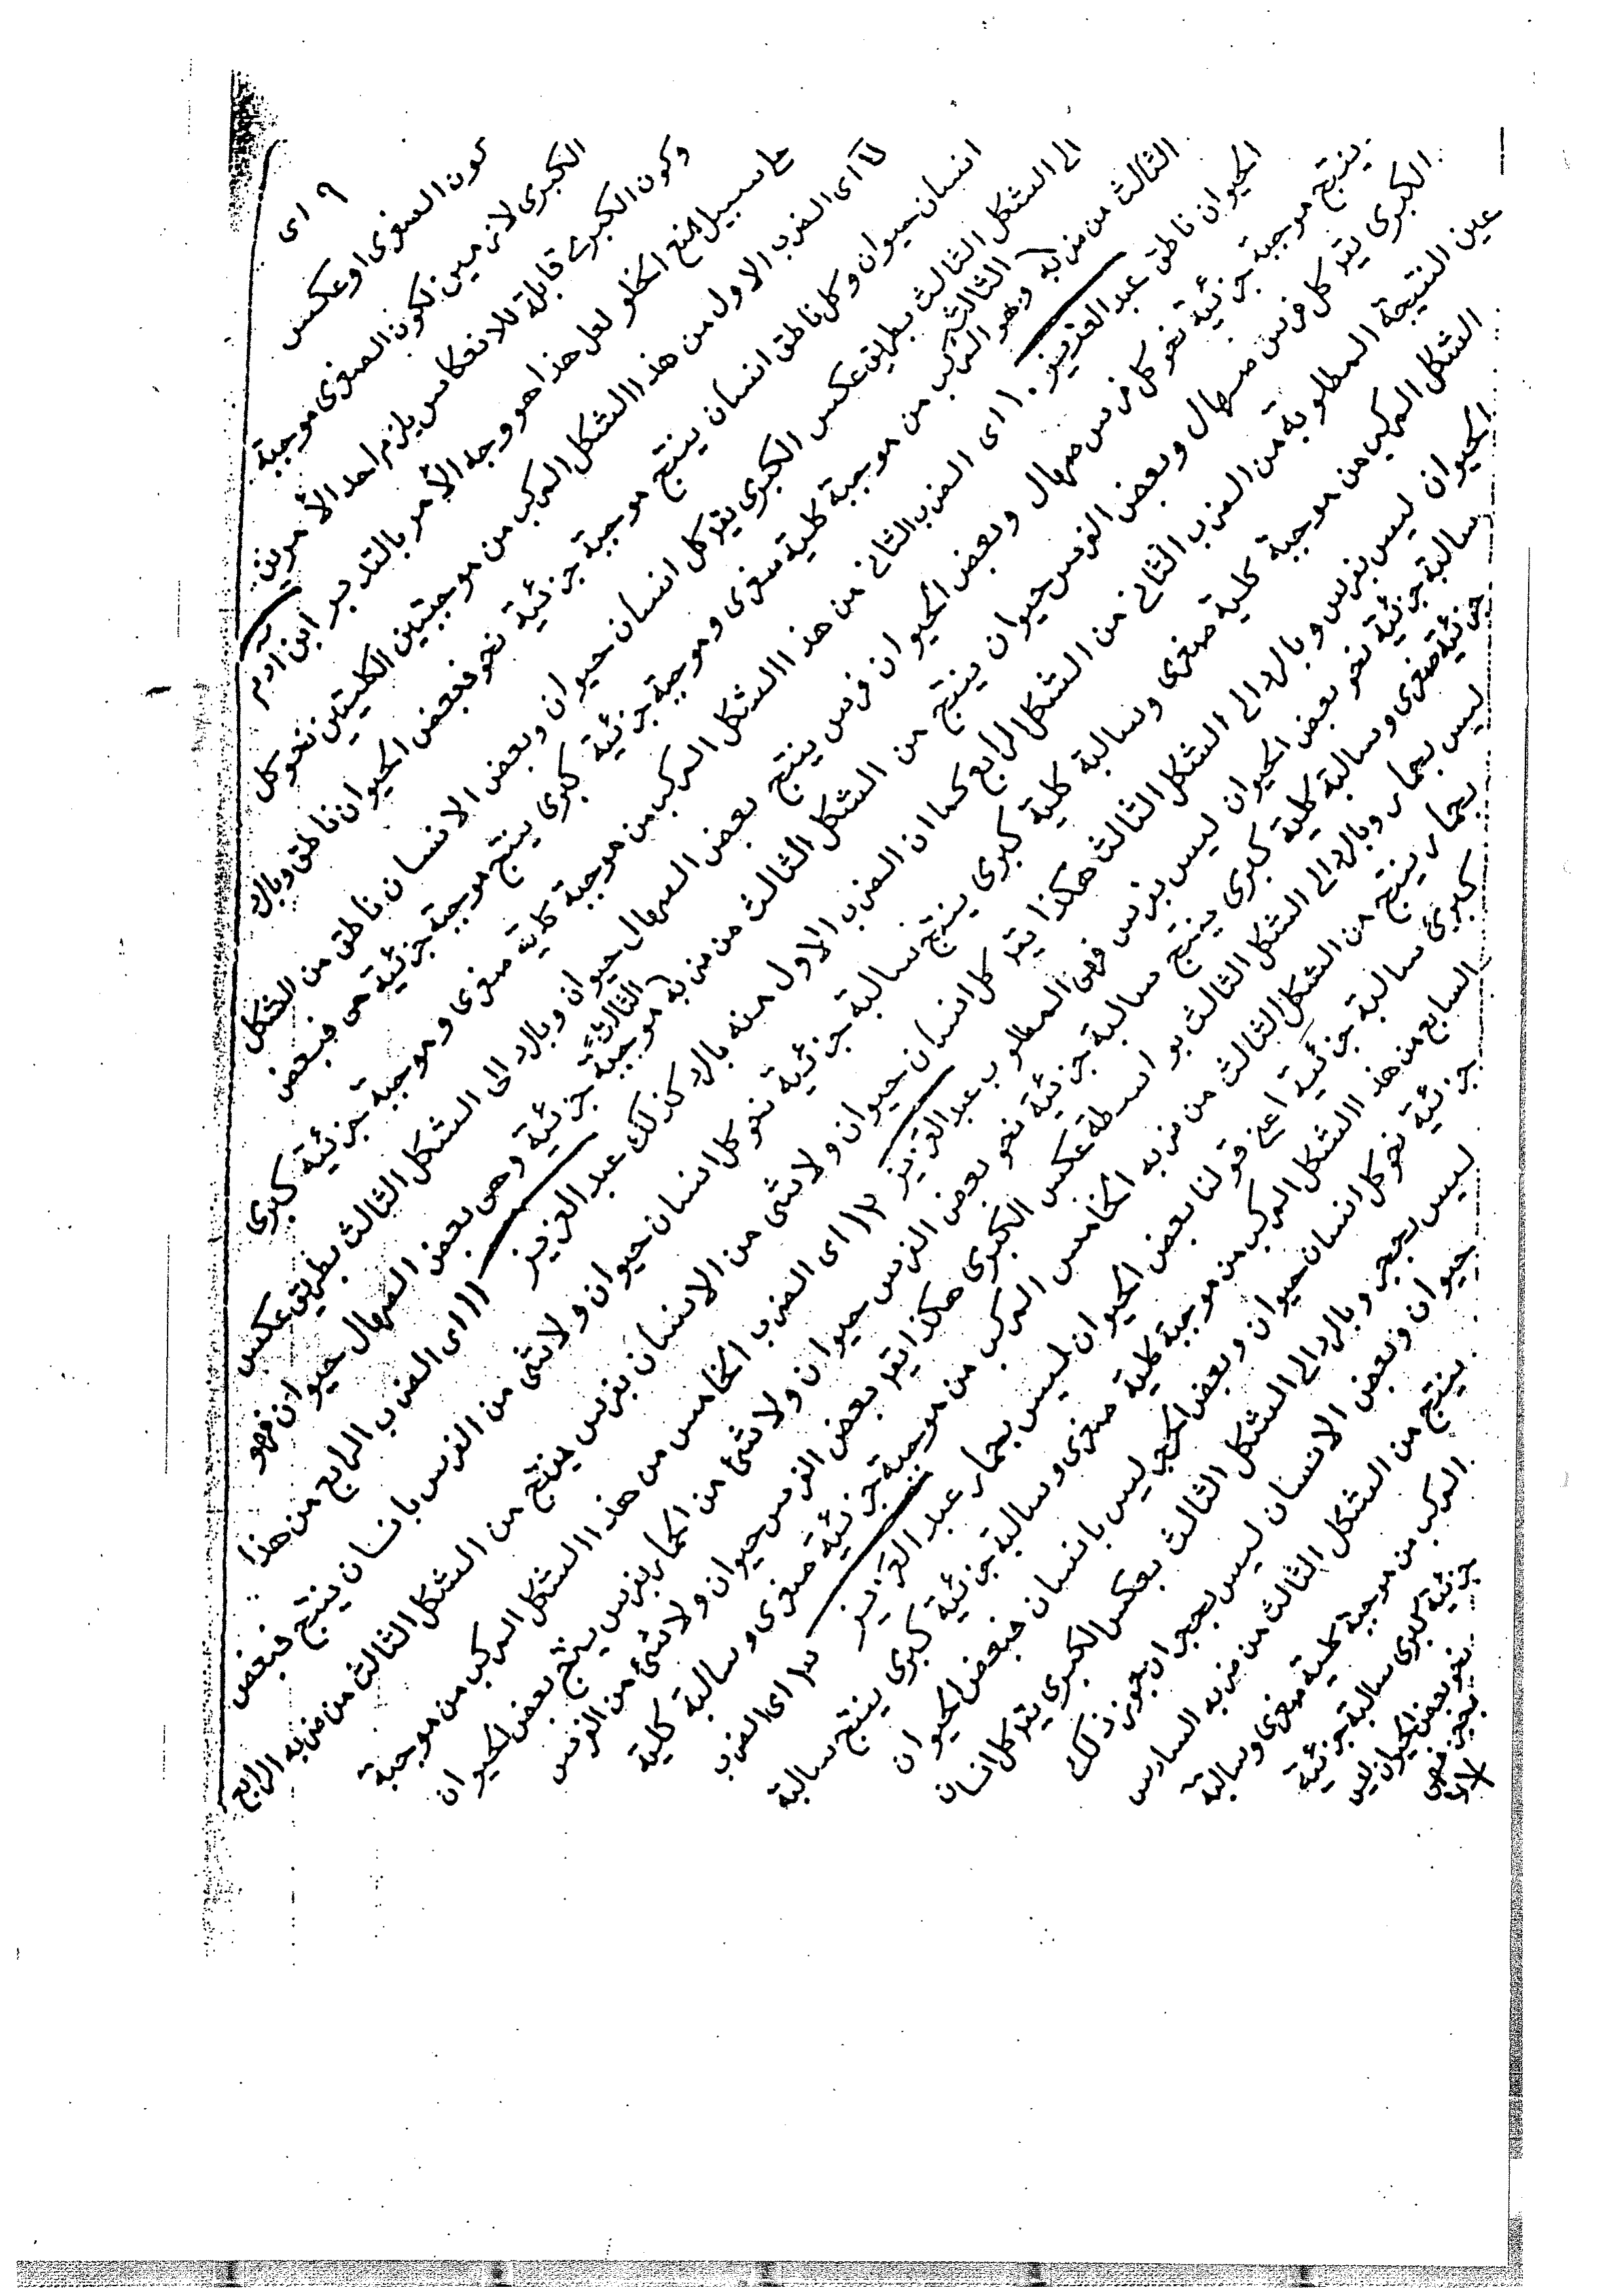 ٩ اى
كون الصغرى او عكس
الكبرى لازمين لكون الصغرى موجبة
وكون الكبرى قابلة للانعكاس يلزم احد الأمرين
على سبيل منع الخلو لعل هذا هو وجه الأمر بالتدبر ابن آدم
اى الضرب الاول من هذا الشكل المركب من موجبتين الكليتين نحو كل
انسان حيوان وكل ناطق انسان ينتج موجبة جزئية نحو فبعض الحيوان ناطق وبالرد
الى الشكل الثالث بطريق عكس الكبرى يقد كل انسان حيوان وبعض الانسان ناطق من الشكل
الثالث من ضربه الثالث وهو المركب من موجبة كلية صغرى وموجبة جزئية كبرى ينتج موجبة جزئية هى فبعض
الحيوان ناطق عبد العزيز ١٠ اى الضرب الثانى من هذا الشكل المركب من موجبة كلية صغرى وموجبة جزئية كبرى
ينتج موجبة جزئية نحو كل فرس صهال وبعض الحيوان فرس ينتج بعض الصهال حيوان وبالرد الى الشكل الثالث بطريق عكس
الكبرى يقد كل فرس صهال وبعض الفرس حيوان ينتج من الشكل الثالث من ضربه الثالث موجبة جزئية وهى بعض الصهال حيوان فهو
عين النتيجة المطلوبة من الضرب الثانى من الشكل الرابع كما ان الضرب الاول منه بالرد كذلك عبد العزيز ١١ اى الضرب الرابع من هذا
الشكل المركب من موجبة كلية صغرى وسالبة كلية كبرى ينتج سالبة جزئية نحو كل انسان حيوان ولا شئ من الفرس بانسان ينتج فبعض
الحيوان ليس بفرس وبالرد الى الشكل الثالث هكذا يقد كل انسان حيوان ولا شئ من الانسان بفرس ينتج من الشكل الثالث من ضربه الرابع
سالبة جزئية نحو بعض الحيوان ليس بفرس فهى المطلوب عبد العزيز ١٢ اى الضرب الخامس من هذا الشكل المركب من موجبة
جزئية صغرى وسالبة كلية كبرى ينتج سالبة جزئية نحو بعض الفرس حيوان ولا شئ من الحمار بفرس ينتج بعض الحيوان
ليس بحمار وبالرد الى الشكل الثالث بواسطة عكس الكبرى هكذا يقد بعض الفرس حيوان ولا شئ من الفرس
بحمار ينتج من الشكل الثالث من ضربه الخامس المركب من موجبة جزئية صغرى وسالبة كلية
كبرى سالبة جزئية اعنى قولنا بعض الحيوان ليس بحمار عبد العزيز ١٣ اى الضرب
السابع من هذا الشكل المركب من موجبة كلية صغرى وسالبة جزئية كبرى ينتج سالبة
جزئية نحو كل انسان حيوان وبعض الحجر ليس بانسان فبعض الحيوان
ليس بحجر وبالرد الى الشكل الثالث بعكس الكبرى يقد كل انسان
حيوان وبعض الانسان ليس بحجر ان يجوز ذلك
ينتج من الشكل الثالث من ضربه السادس
المركب من موجبة كلية صغرى وسالبة
جزئية كبرى سالبة جزئية
نحو بعض الحيوان ليس
بحجر فهى